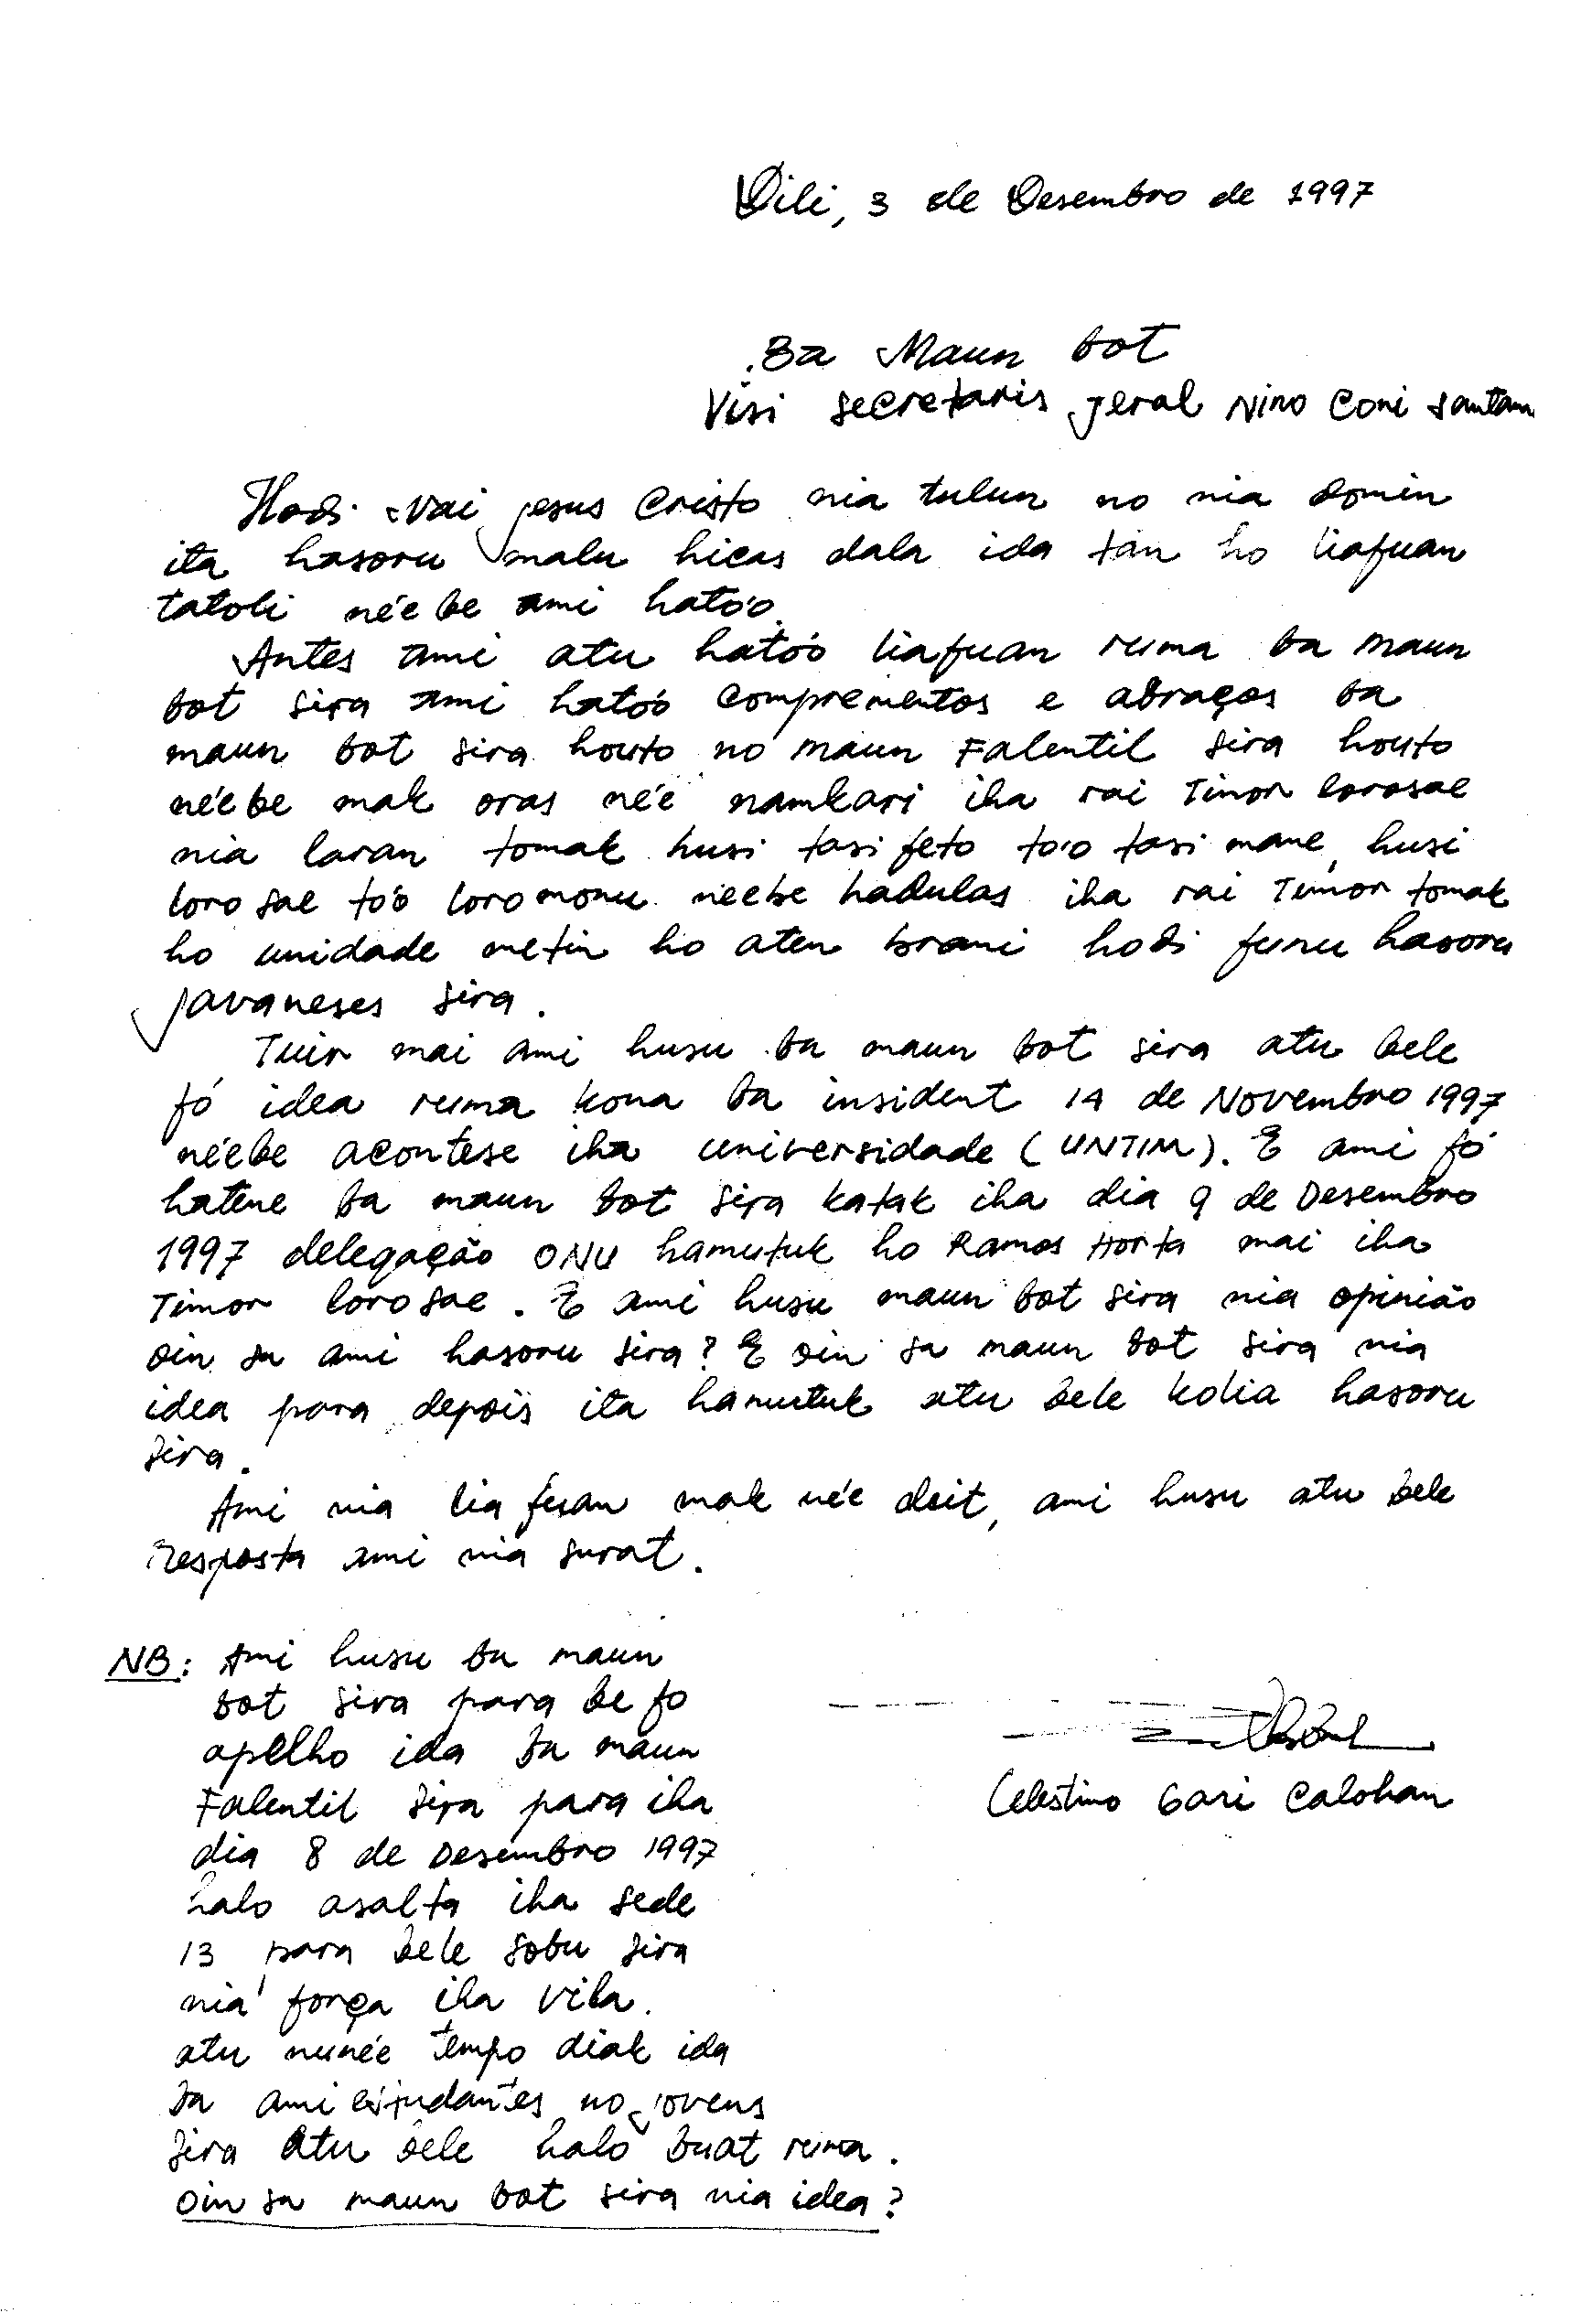 Dili, 3 de Desembro de 1997
Ba Maun bot
Visi secretaris jeral Nino Coni Santan
Hodi Nai Jesus Cristo nia tulun no nia domin
ita hasoru malu hicas dala ida tan ho liafuan
tatoli né'e be amiható'o.
Antes ami atu ható'o liafuan ruma ba maun
bot sira ami ható'o comprementos e abraços ba
maun bot sira houto no maun Falentil sira houto
né'ebe mak oras né'e namkari iha rai Timor lorosae
nia laran tomak husi tasi feto to'o tasi mane, husi
loro sae tó'o loro monu neebe hadulas iha rai Timor tomak
ho unidade metin ho aten brani hodi funu hasoru
javaneses sira.
Tuir mai ami husu ba maun bot sira atu bele
fó idea ruma kona ba insident 14 de Novembro 1997
né'ebe acontese iha universidade (UNTIM). E ami fó
hatene ba maun bot sira katak iha dia 9 de Desembro
1997 delegação ONU hamutuk ho Ramos Horta mai iha
Timor loro sae. E ami husu maun bot sira nia opinião
oin sa ami hasoru sira? E oin sa maun bot sira nia
idea para depois ita hamutuk atu bele kolia hasoru
sira.
Ami nia lia fuan mak né'e deit, ami husu atu bele
resposta ami nia surat.
NB: Ami husu ba maun
bot sira para be fo
apelho ida ba maun
Falentil sira para iha
dia 8 de Desembro 1997
halo asalta iha sede
13 para bele sobu sira
nia força iha vila.
atu nunée tempo diak ida
ba ami estudantes no jovens
sira atu bele halo buat ruma.
oin sa maun bot sira nia idea?
Celestino Gari Calohan